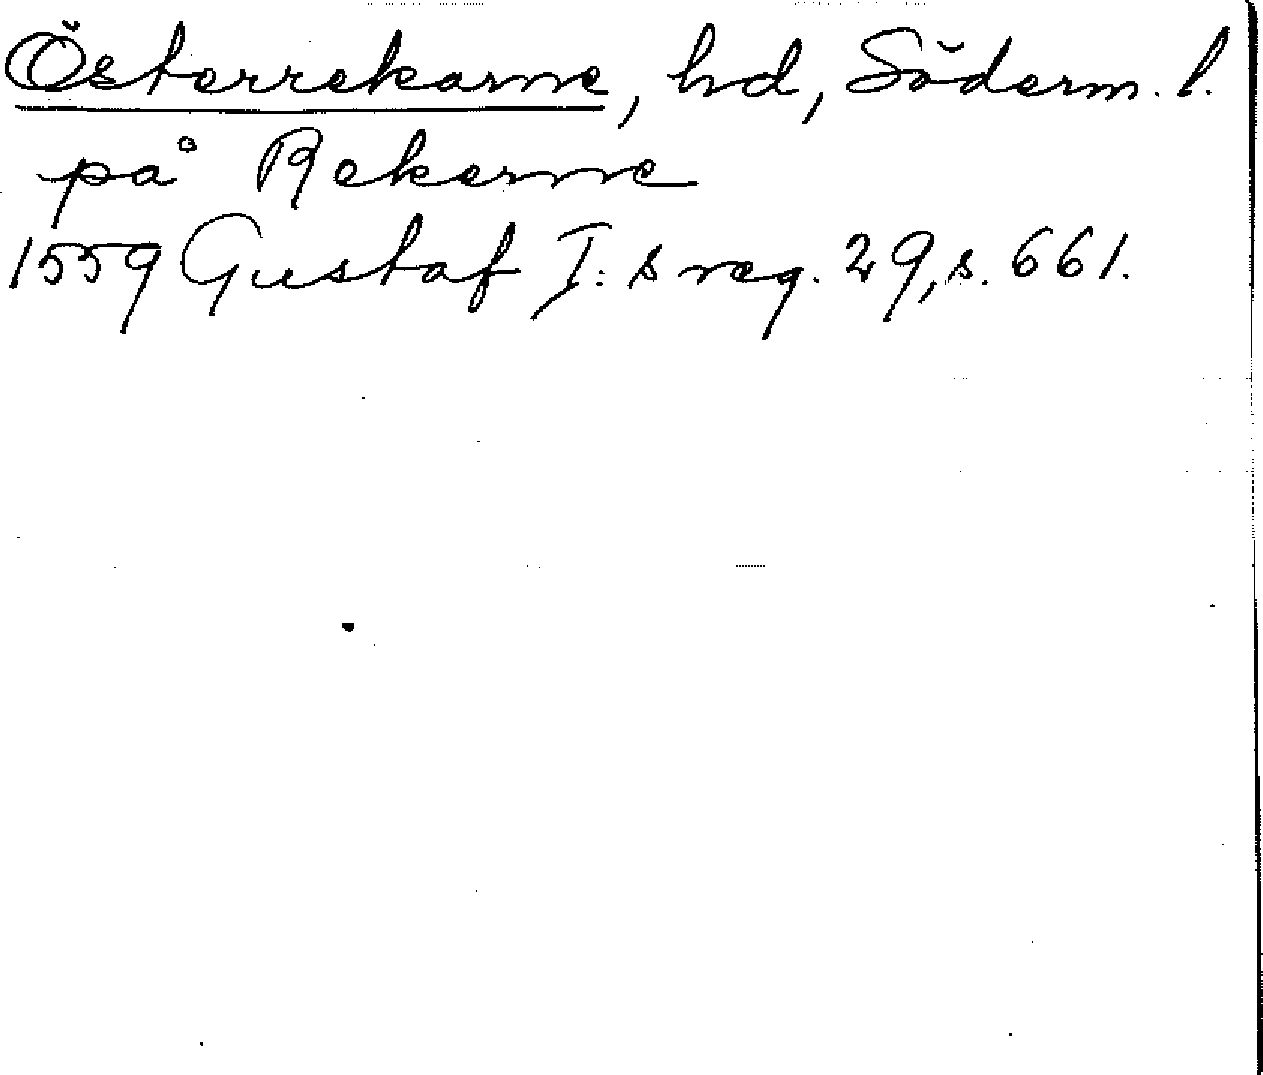 Österrekarne, hd, Söderm. l.
på Rekarne
1559 Gustaf I:s reg. 29, s. 661.